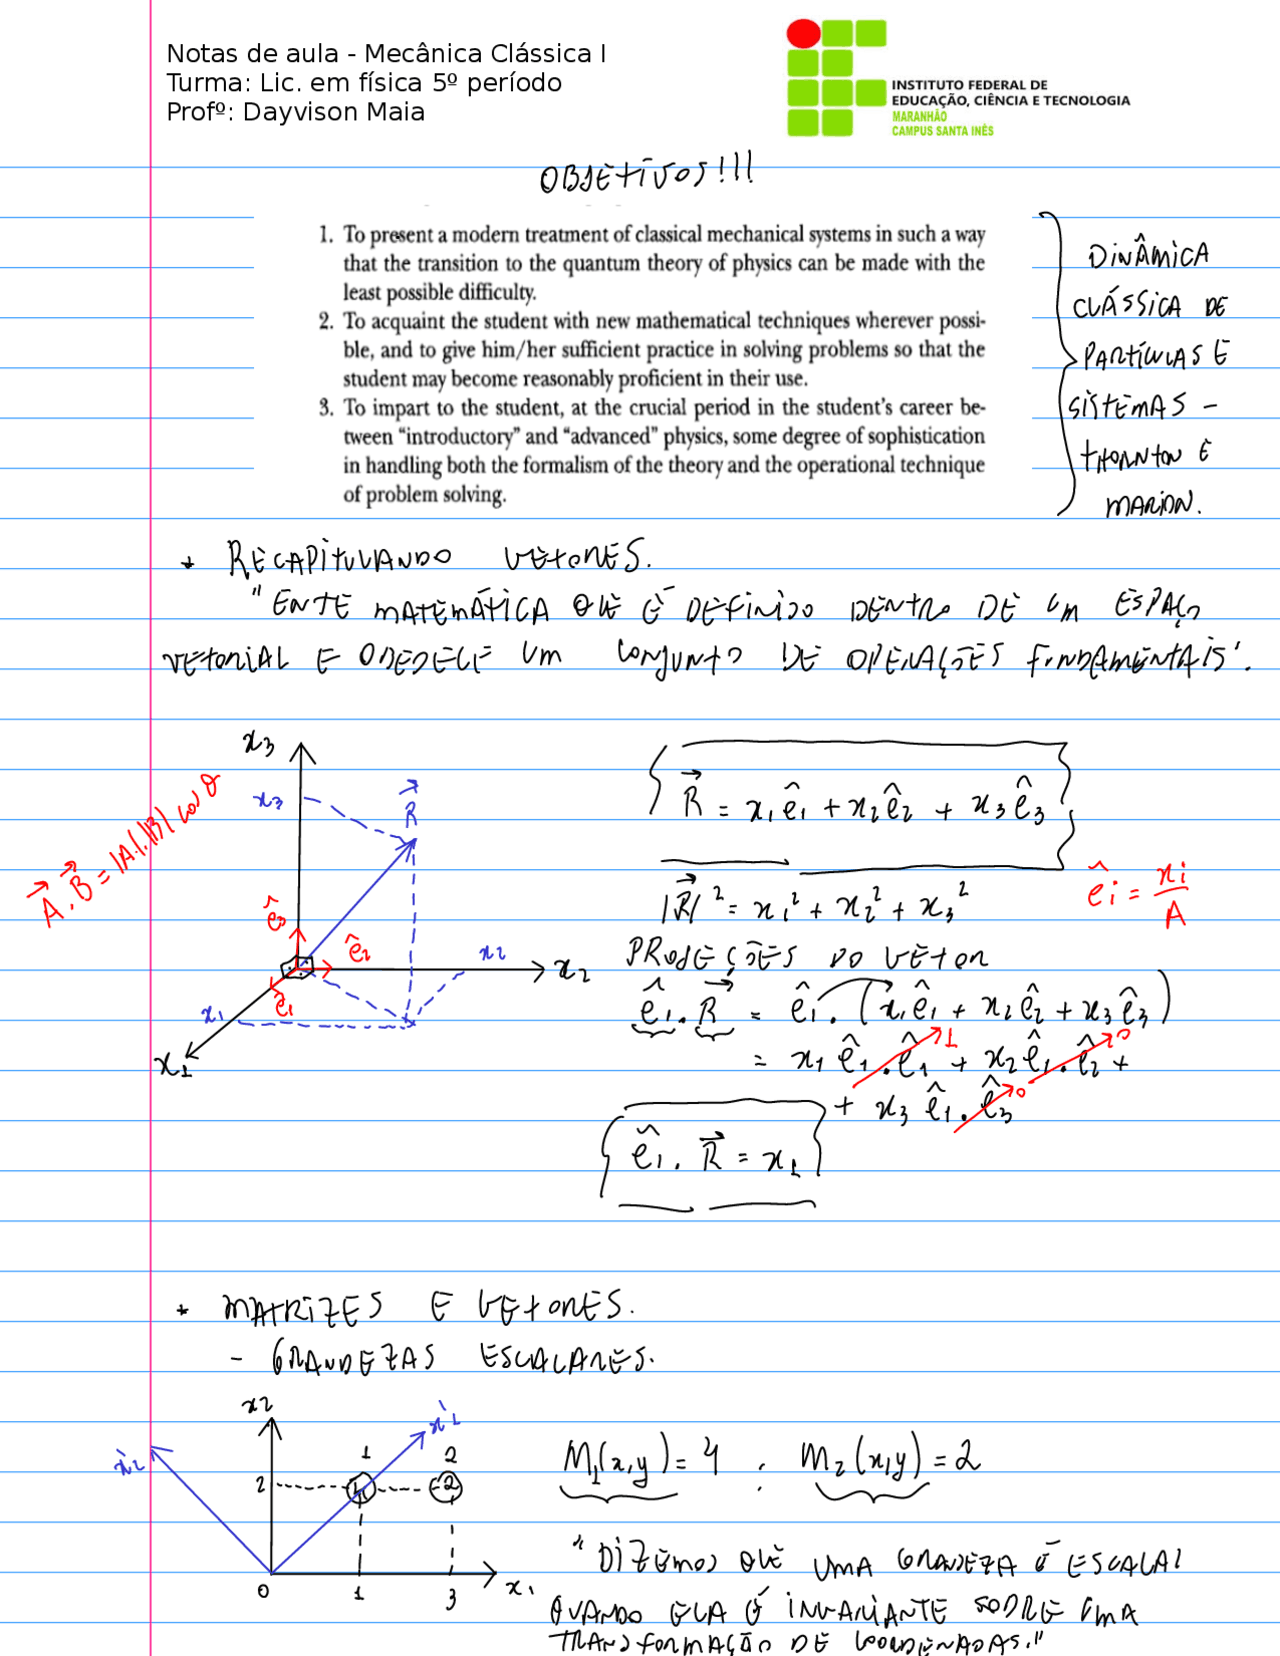 Notas de aula - Mecânica Clássica I
Turma: Lic. em física 5º período
Profº: Dayvison Maia
INSTITUTO FEDERAL DE
EDUCAÇÃO, CIÊNCIA E TECNOLOGIA
MARANHÃO
CAMPUS SANTA INÊS
OBJETIVOS!!!
1. To present a modern treatment of classical mechanical systems in such a way
that the transition to the quantum theory of physics can be made with the
least possible difficulty.
2. To acquaint the student with new mathematical techniques wherever possi-
ble, and to give him/her sufficient practice in solving problems so that the
student may become reasonably proficient in their use.
3. To impart to the student, at the crucial period in the student's career be-
tween "introductory" and "advanced" physics, some degree of sophistication
in handling both the formalism of the theory and the operational technique
of problem solving.
DINÂMICA
CLÁSSICA DE
PARTÍCULAS E
SISTEMAS -
THORNTON E
MARION.
* RECAPITULANDO VETORES.
"ENTE MATEMÁTICA QUE É DEFINIDO DENTRO DE UM ESPAÇO
VETORIAL E OBEDECE UM CONJUNTO DE OPERAÇÕES FUNDAMENTAIS".
x₃
x₃
R⃗
A⃗.B⃗ = |A|.|B| cos θ
ê₃
ê₂
x₂
x₂
ê₁
x₁
x₁
R⃗ = x₁ê₁ + x₂ê₂ + x₃ê₃
|R⃗|² = x₁² + x₂² + x₃²
êi = xi/A
PROJEÇÕES DO VETOR
ê₁.R⃗ = ê₁.(x₁ê₁ + x₂ê₂ + x₃ê₃)
= x₁ ê₁.ê₁ 1 + x₂ê₁.ê₂ 0 +
+ x₃ ê₁.ê₃ 0
ê₁.R⃗ = x₁
* MATRIZES E VETORES.
- GRANDEZAS ESCALARES.
x₂
x'₁
x'₂
1 2
2 4 2
0 1 3 x₁
M₁(x,y) = 4 ; M₂(x,y) = 2
"DIZEMOS QUE UMA GRANDEZA É ESCALAR
QUANDO ELA É INVARIANTE SOBRE UMA
TRANSFORMAÇÃO DE COORDENADAS."